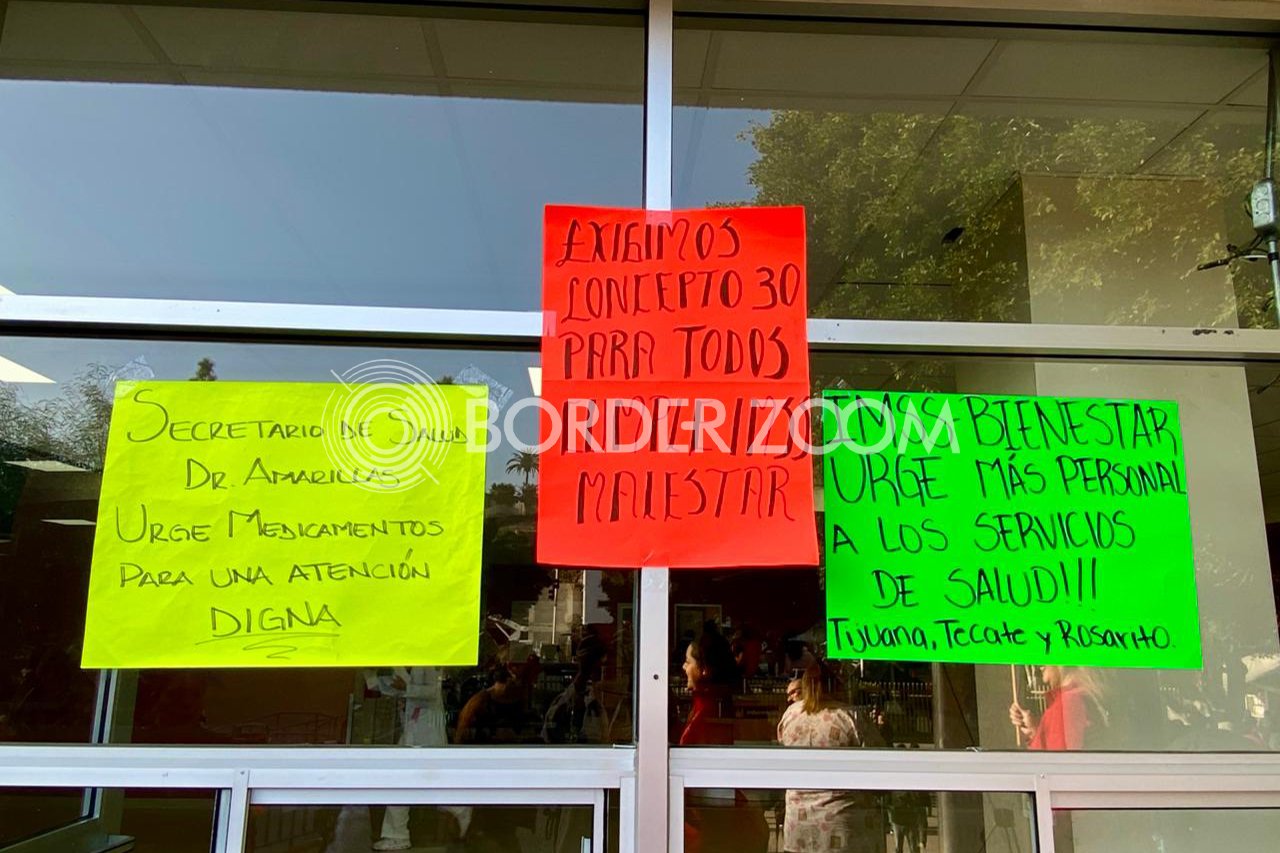 SECRETARIO DE SALUD
DR. AMARILLAS
URGE MEDICAMENTOS
PARA UNA ATENCIÓN
DIGNA
EXIGIMOS
CONCEPTO 30
PARA TODOS
MALESTAR
IMSS-BIENESTAR
URGE MÁS PERSONAL
A LOS SERVICIOS
DE SALUD!!!
Tijuana, Tecate y Rosarito.
BORDER ZOOM